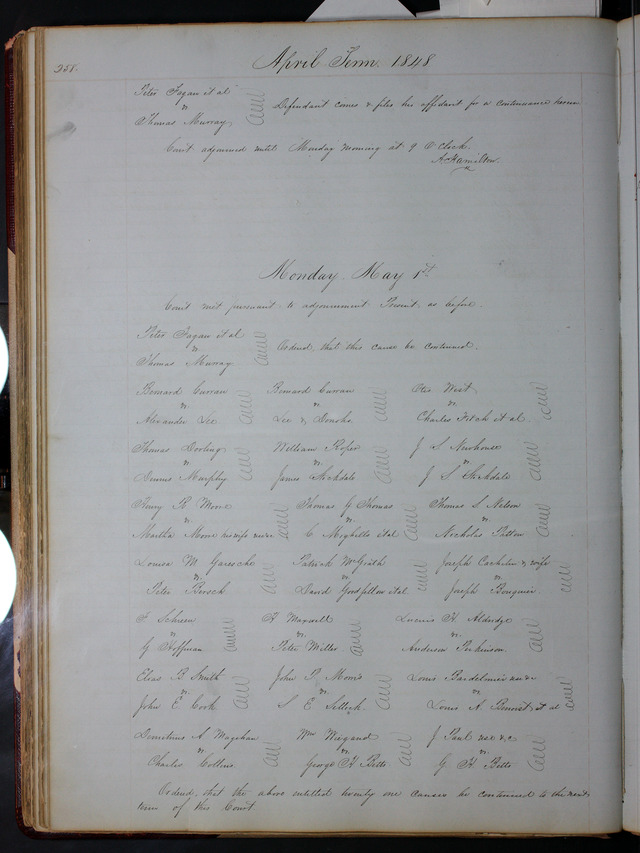 258.
April Term 1848
Peter Fagan et al
vs
Thomas Murray
Defendant comes & files his affidavit for a continuance herein
Court adjourned until Monday morning at 9 O'Clock.
A Hamilton
Monday May 1st
Court met pursuant to adjournment Present as before.
Peter Fagan et al
vs
Thomas Murray
Ordered that this cause be continued.
Bernard Curran
vs
Alexander Lee
Bernard Curran
vs
Lee &
Otis West
vs
Charles Fitch et al
Thomas Dorling
vs
Dennis Murphy
William Roper
vs
James Stokdale
J S Newhouse
vs
J S Stokdale
Henry R Moore
vs
Martha Moore
Thomas G Thomas
vs
C et al
Thomas S Nelson
vs
Nicholas Patton
Louisa M Garesche
vs
Peter
Patrick McGrath
vs
David Goodfellow et al
Joseph & wife
vs
Joseph
F
vs
G Hoffman
H Maxwell
vs.
Peter Miller
Lucius H Aldridge
vs
Anderson Perkinson
Elias B Smith
vs
John E Cook
John P Morris
vs
S E Sellick
Louis
vs
Louis A Benoist et al
A
vs
Charles Collins
Wm Wiegand
vs.
George H Betts
J Paul
vs.
G H Betts
Ordered, that the above entitled twenty one causes be continued to the next
term of this Court